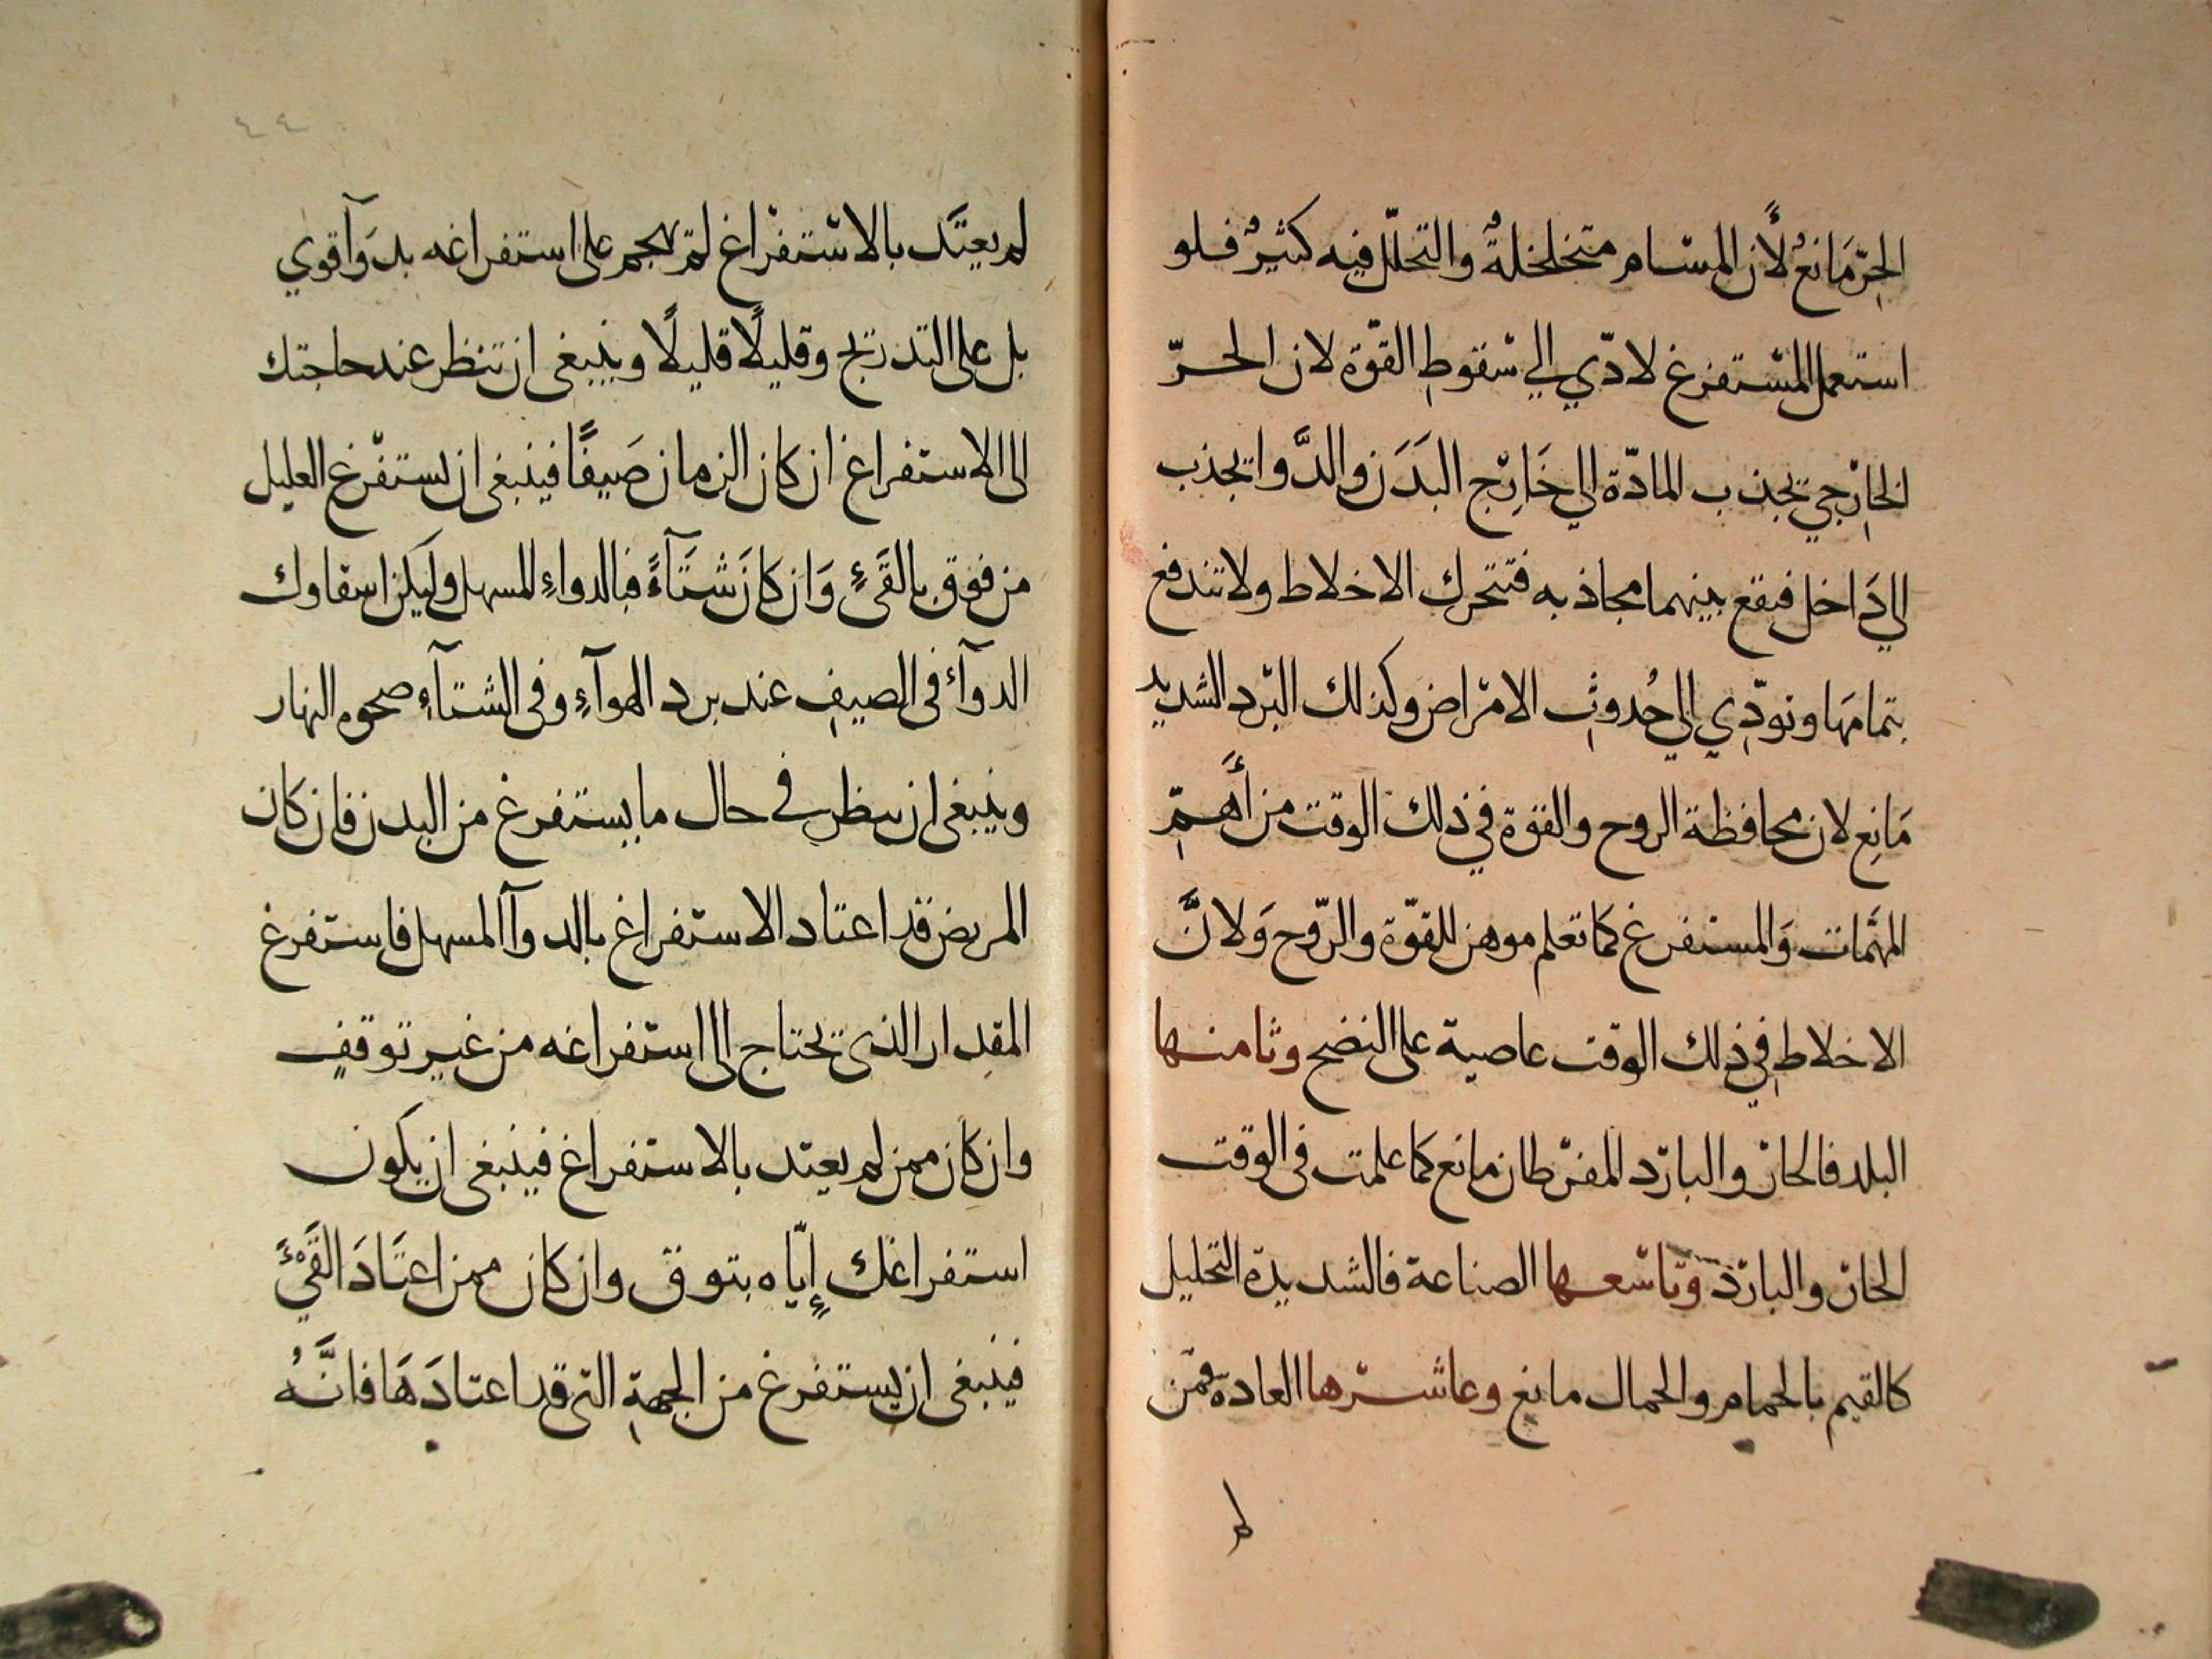 الحرّ مَانعٌ لأن المسام متخلخلةٌ والتحلّل فيه كثيرٌ فلو
استعمل المستفرغ لادّي الي سقوطِ القوّة لان الحرّ
الخارجي يجذب المادّة الي خَارِج البَدَن والدَّوا يجذب
الي دَاخل فيقع بينهما مجاذبه فتتحرك الاخلاط ولا تندفع
بتمامهَا وتودّي الي حُدوثِ الامراض وكذلك البرد الشديد
مَانِع لان محافظة الروح والقوة في ذلك الوقت من أَهمِّ
المهمَّات وَالمستفرغ كما تعلم موهن للقوّة والرّوح وَلانَّ
الاخلاطِ في ذلك الوقت عاصية على النضج وثامنها
البلد فالحار والبارد المفرطان مانع كما علمت في الوقت
الحار والبارد وتاسعها الصناعة فالشديدة التحليل
كالقيم بالحمام والحمال مانع وعاشرها العادة فمن
لم
٤٤
لم يعتَد بالاستفراغ لم تهجم على استفراغه بدوَآ قوي
بل على التدريج وقليلًا قليلًا وينبغى ان تنظر عند حاجتك
الى الاستفراغ ان كان الزمان صَيفًا فينبغى ان يستفرغ العليل
من فوق بالقَيءِ وَان كانَ شتَآءً فبالدواءِ المسهل وليكن اسقاوك
الدوآء فى الصيفِ عند برد الهوآءِ وفى الشتآءِ صحوه النهار
وينبغى ان ينظر في حال ما يستفرغ من البدن فان كان
المريض قد اعتاد الاستفراغ بالدوآ المسهل فاستفرغ
المقدار الذى يحتاج الى استفراغه من غير توقفٍ
وان كان ممن لم يعتد بالاستفراغ فينبغى ان يكون
استفراغك إيّاه بتوق وان كان ممن اعتَادَ القَيْءَ
فينبغى ان يستفرغ من الجهةِ التى قد اعتادَهَا فانَّهُ